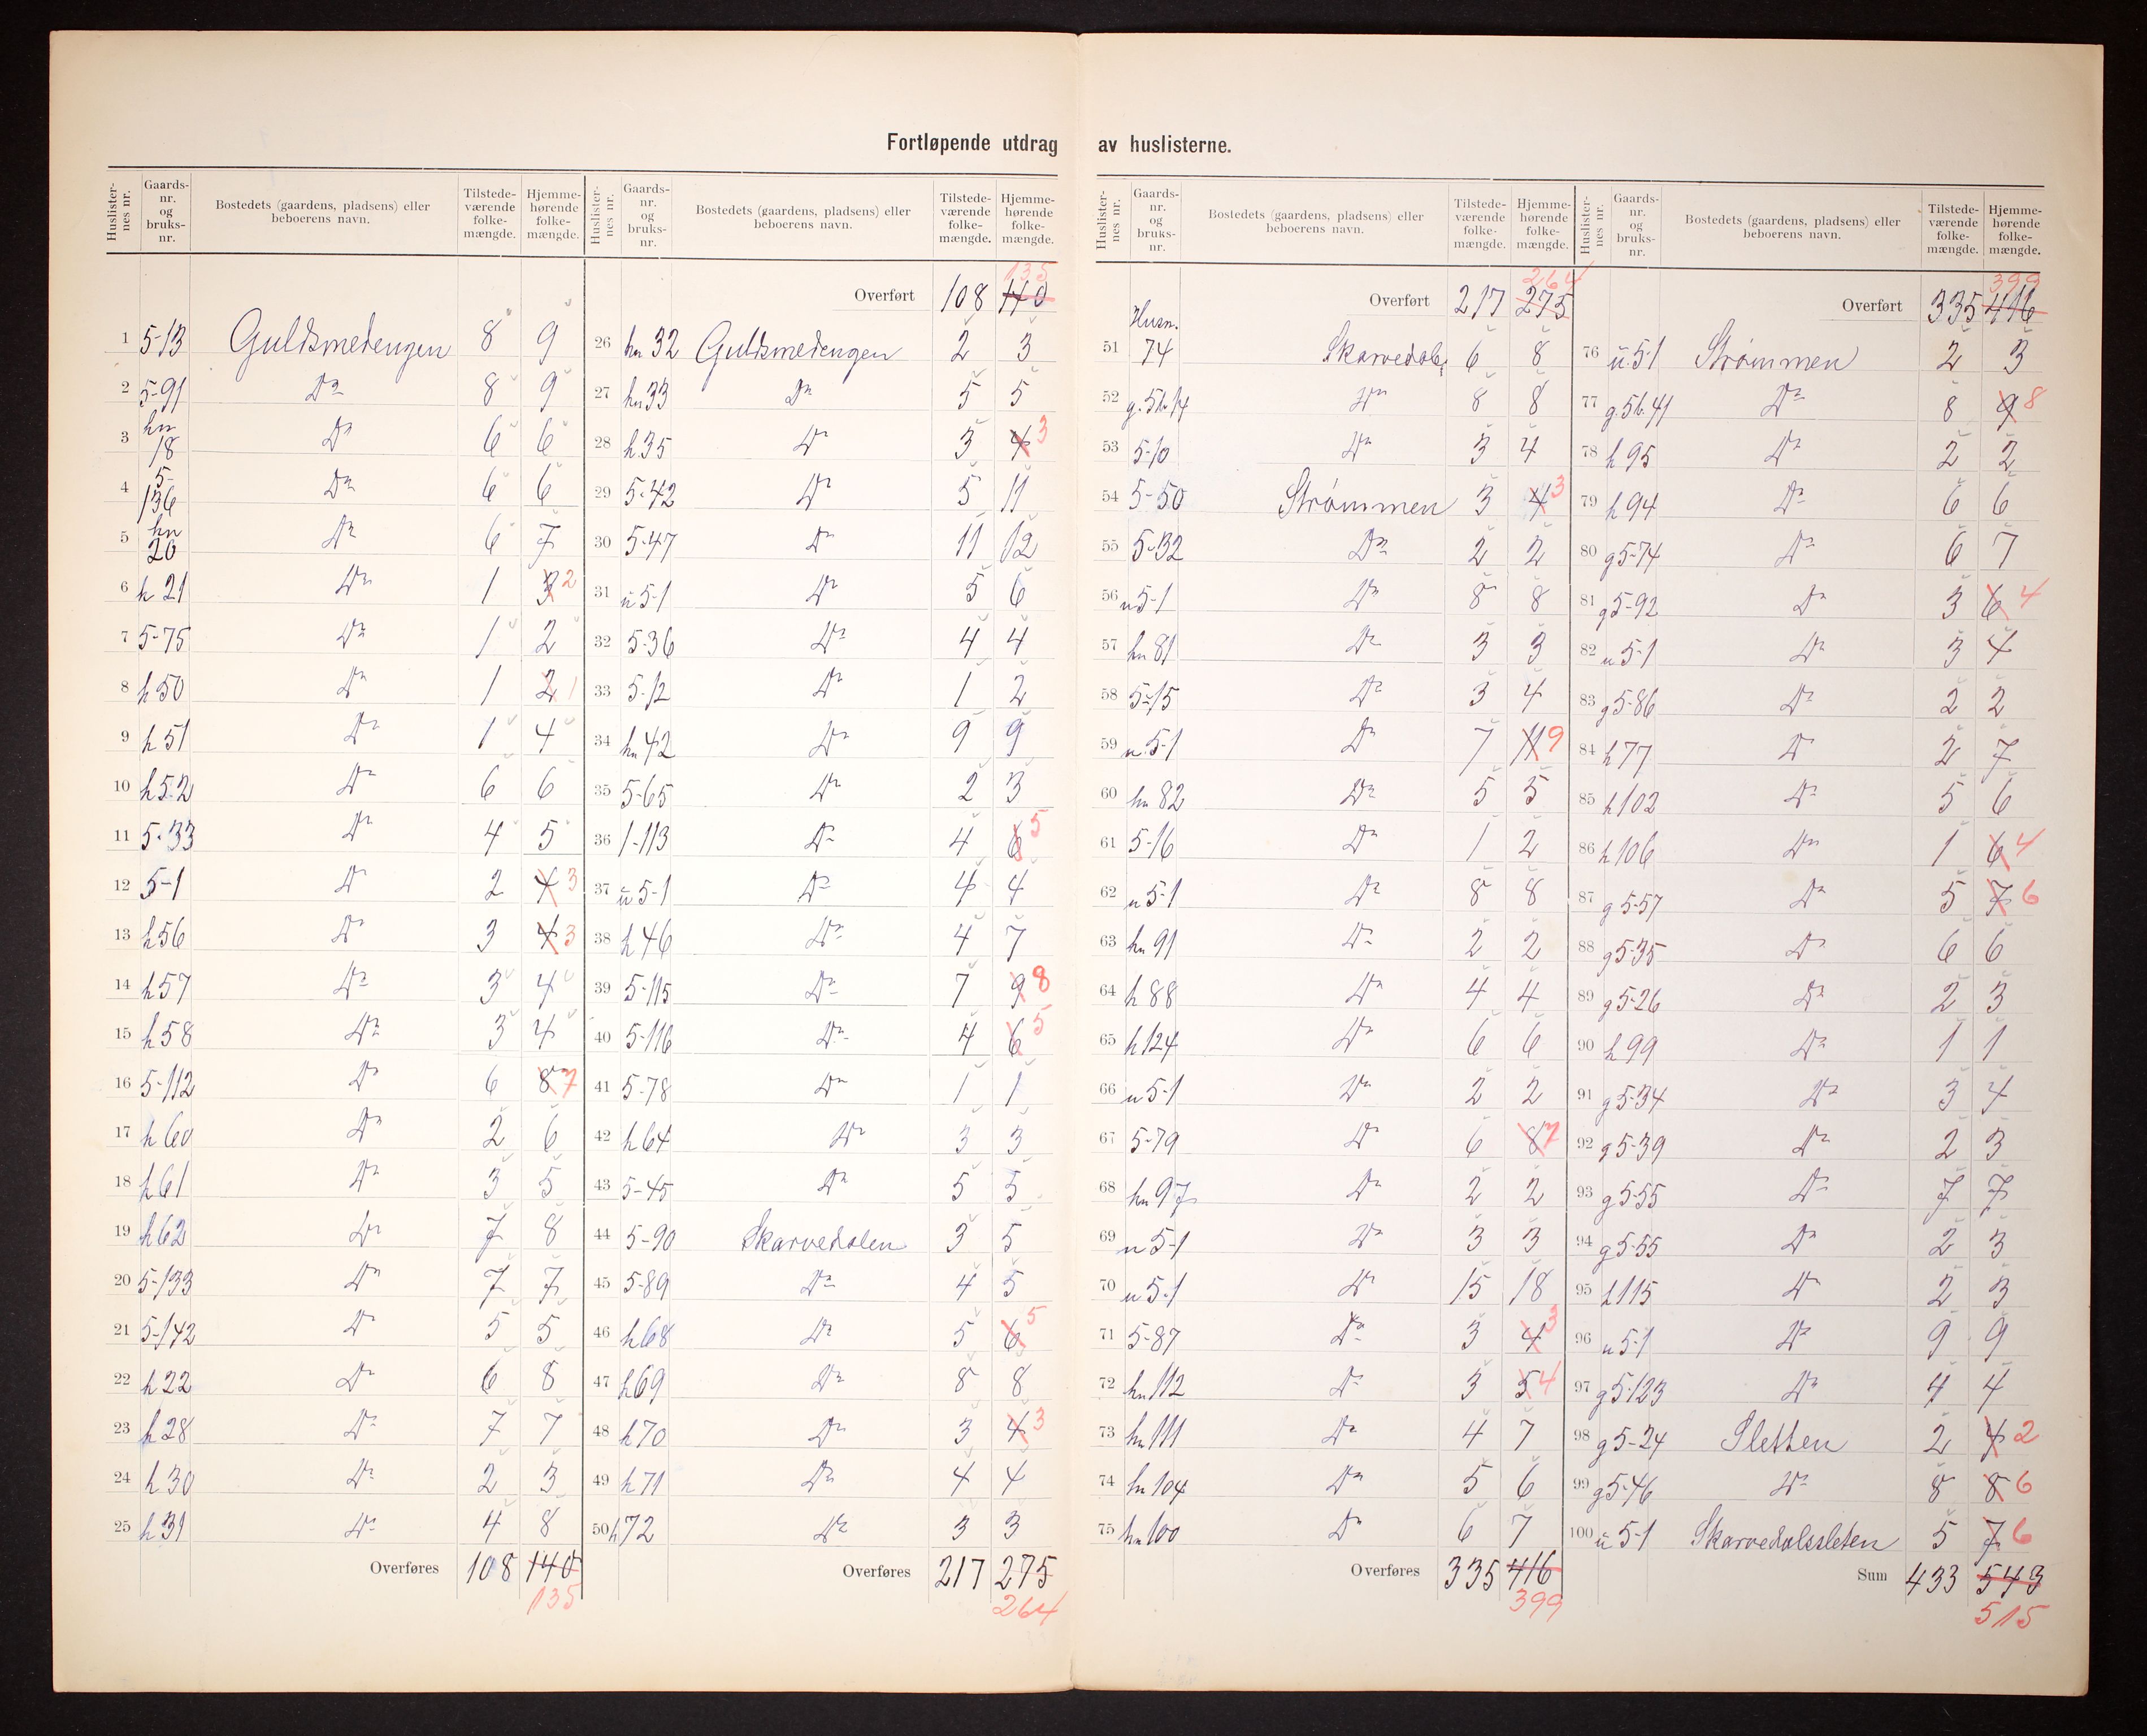 Fortløpende utdrag av huslisterne.
Huslisternes nr. | Gaardsnr. og bruksnr. | Bostedets (gaardens, pladsens) eller beboerens navn. | Tilstedeværende folkemængde. | Hjemmehørende folkemængde.
1 5-13 Guldsmedengen 8 9
2 5-91 Do 8 9
3 hn 18 Do 6 6
4 5-136 Do 6 6
5 hn 20 Do 6 7
6 h 21 Do 1 3 2
7 5-75 Do 1 2
8 h 50 Do 1 2 1
9 h 51 Do 1 4
10 h 52 Do 6 6
11 5-33 Do 4 5
12 5-1 Do 2 4 3
13 h 56 Do 3 4 3
14 h 57 Do 3 4
15 h 58 Do 3 4
16 5-112 Do 6 8 7
17 h 60 Do 2 6
18 h 61 Do 3 5
19 h 62 Do 7 8
20 5-133 Do 7 7
21 5-142 Do 5 5
22 h 22 Do 6 8
23 h 28 Do 7 7
24 h 30 Do 2 3
25 h 31 Do 4 8
Overføres 108 140
135
Huslisternes nr. | Gaardsnr. og bruksnr. | Bostedets (gaardens, pladsens) eller beboerens navn. | Tilstedeværende folkemængde. | Hjemmehørende folkemængde.
135
Overført 108 140
26 hn 32 Guldsmedengen 2 3
27 hn 33 Do 5 5
28 h 35 Do 3 4 3
29 5-42 Do 5 11
30 5-47 Do 11 12
31 u 5-1 Do 5 6
32 5-36 Do 4 4
33 5-12 Do 1 2
34 hn 42 Do 9 9
35 5-65 Do 2 3
36 1-113 Do 4 6 5
37 u 5-1 Do 4 4
38 h 46 Do 4 7
39 5-115 Do 7 9 8
40 5-116 Do 4 6 5
41 5-78 Do 1 1
42 h 64 Do 3 3
43 5-45 Do 5 5
44 5-90 Skarvedalen 3 5
45 5-89 Do 4 5
46 h 68 Do 5 6 5
47 h 69 Do 8 8
48 h 70 Do 3 4 3
49 h 71 Do 4 4
50 h 72 Do 3 3
Overføres 217 275
264
Huslisternes nr. | Gaardsnr. og bruksnr. | Bostedets (gaardens, pladsens) eller beboerens navn. | Tilstedeværende folkemængde. | Hjemmehørende folkemængde.
264
Overført 217 275
51 Husn. 74 Skarvedale 6 8
52 g. 5 b. 14 Do 8 8
53 5-10 Do 3 4
54 5-50 Strømmen 3 4 3
55 5-32 Do 2 2
56 u 5-1 Do 8 8
57 hn 81 Do 3 3
58 5-15 Do 3 4
59 u. 5-1 Do 7 11 9
60 hn 82 Do 5 5
61 5-16 Do 1 2
62 u 5-1 Do 8 8
63 hn 91 Do 2 2
64 h 88 Do 4 4
65 h 124 Do 6 6
66 u 5-1 Do 2 2
67 5-79 Do 6 8 7
68 hn 97 Do 2 2
69 u 5-1 Do 3 3
70 u 5-1 Do 15 18
71 5-87 Do 3 4 3
72 hn 112 Do 3 5 4
73 hn 111 Do 4 7
74 hn 104 Do 5 6
75 hn 100 Do 6 7
Overføres 335 416
399
Huslisternes nr. | Gaardsnr. og bruksnr. | Bostedets (gaardens, pladsens) eller beboerens navn. | Tilstedeværende folkemængde. | Hjemmehørende folkemængde.
399
Overført 335 416
76 u. 5-1 Strømmen 2 3
77 g. 5 b. 41 Do 8 9 8
78 h 95 Do 2 2
79 h 94 Do 6 6
80 g 5-74 Do 6 7
81 g 5-92 Do 3 6 4
82 u 5-1 Do 3 4
83 g 5-86 Do 2 2
84 h 77 Do 2 7
85 h 102 Do 5 6
86 h 106 Do 1 6 4
87 g 5-57 Do 5 7 6
88 g 5-35 Do 6 6
89 g 5-26 Do 2 3
90 h 99 Do 1 1
91 g 5-34 Do 3 4
92 g 5-39 Do 2 3
93 g 5-55 Do 7 7
94 g 5-55 Do 2 3
95 h 115 Do 2 3
96 u 5-1 Do 9 9
97 g 5-123 Do 4 4
98 g 5-24 Sletten 2 4 2
99 g 5-46 Do 8 8 6
100 u 5-1 Skarvedalssleten 5 7 6
Sum 433 543
515